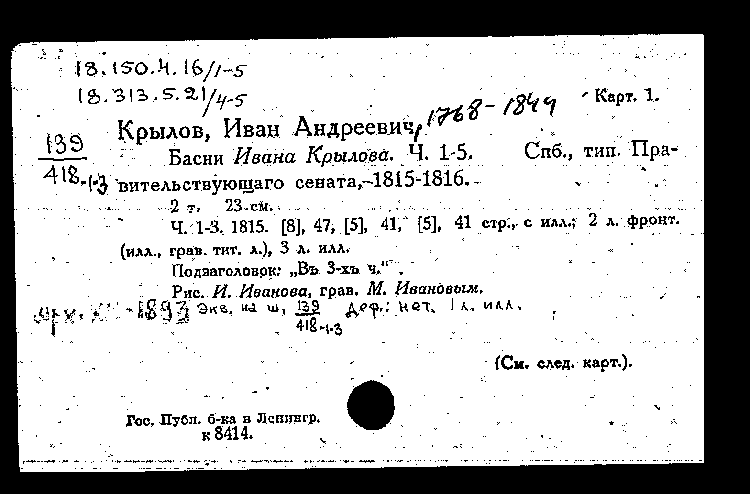 18.150.4.16/1-5
18.313.5.21/4-5
Карт. 1.
Крылов, Иван Андреевич, 1768-1844
139
418.-1-3
Басни Ивана Крылова. Ч. 1-5. Спб., тип. Пра-
вительствующаго сената, 1815-1816.
2 т. 23 см.
Ч. 1-3. 1815. [8], 47, [5], 41, [5], 41 стр., с илл.; 2 л. фронт.
(илл., грав. тит. л.), 3 л. илл.
Подзаголовок: „Въ 3-хъ ч."
Рис. И. Иванова, грав. М. Ивановым.
1893 Экз. на ш. 139
418-1-3 деф.: нет. 1 л. илл.
(См. след. карт.).
Гос. Публ. б-ка в Ленингр.
к 8414.